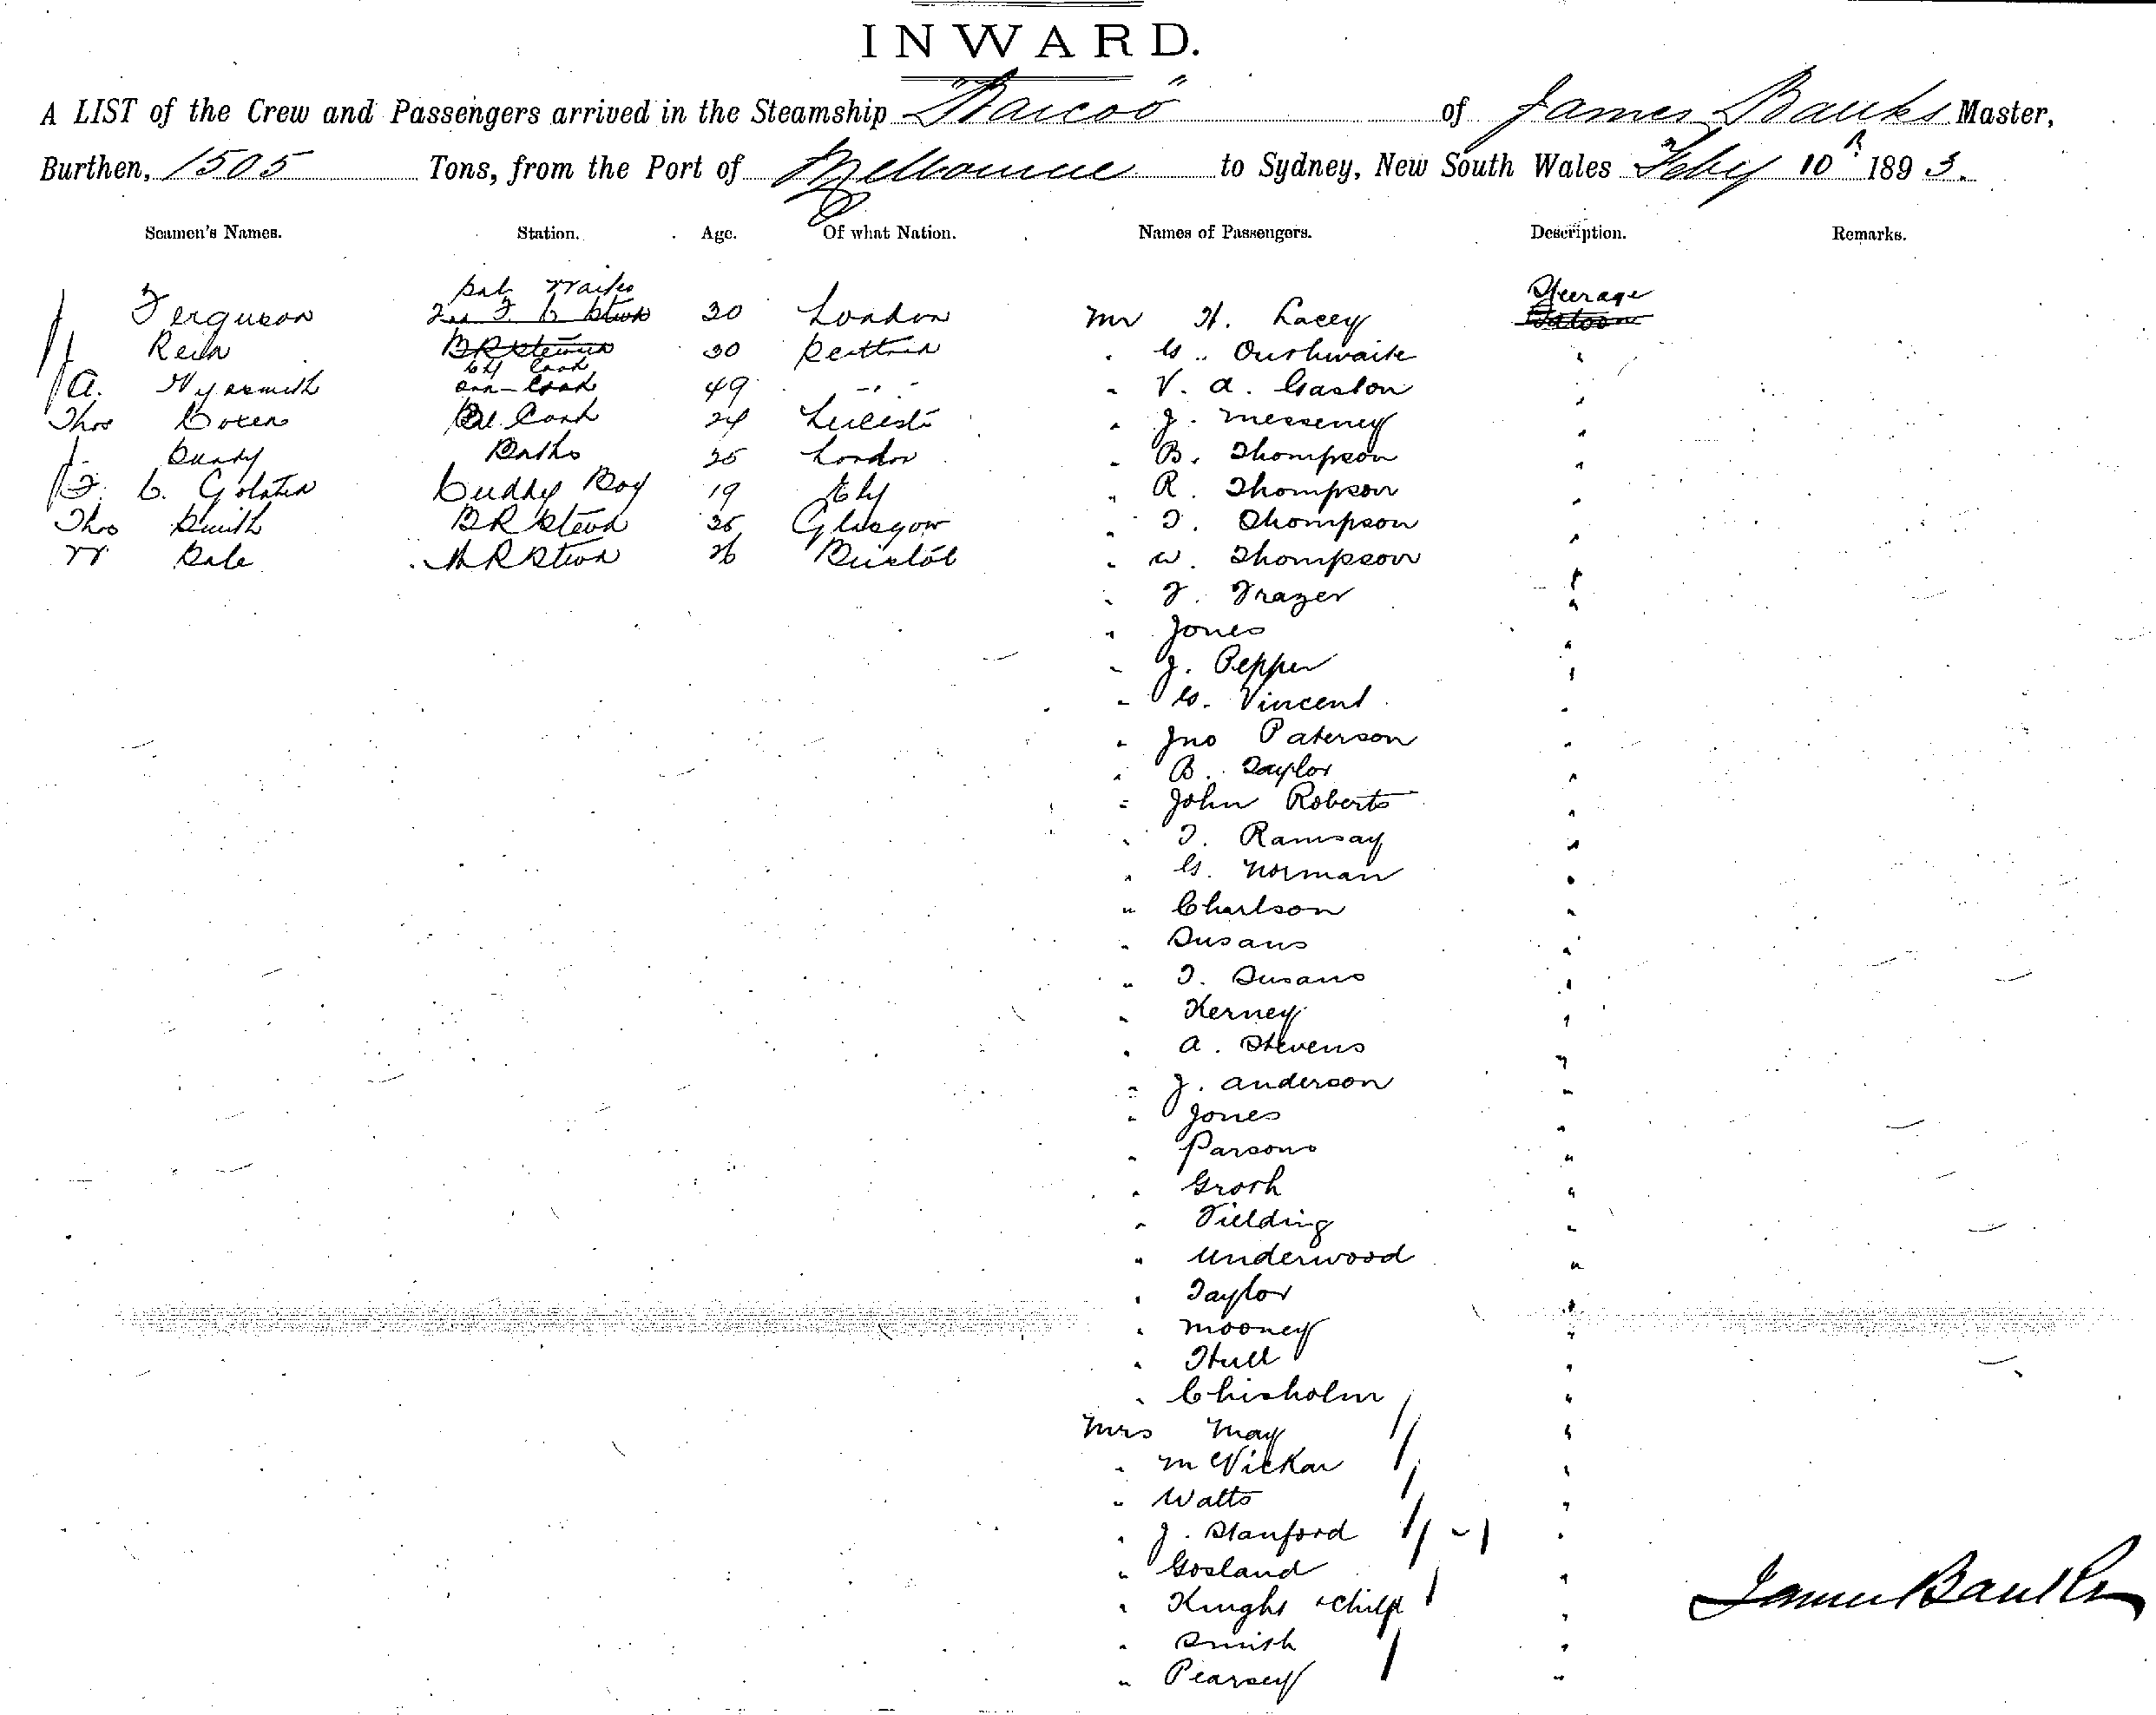 INWARD.
A LIST of the Crew and Passengers arrived in the Steamship "Barcoo" of James Banks Master,
Burthen, 1505 Tons, from the Port of Melbourne to Sydney, New South Wales Feby 10th 1893.
Seamen's Names. Station. Age. Of what Nation. Names of Passengers. Description. Remarks.
Steerage
Ferguson 30 London Mr H. Lacey Saloon
30 " G. Outhwaite "
A. 49 " V. A. Gaston "
Thos 24 " J. Messeney "
Bundy 25 London " B. Thompson "
Cuddy Boy 19 Ely " R. Thompson "
Thos Smith BR Stewd Glasgow " T. Thompson "
W Dale 26 Bristol " W. Thompson "
" F. Frazer "
" Jones "
" J. Pepper "
" G. Vincent "
" Jno Paterson "
" B. Taylor "
" John Roberts "
" T. Ramsay "
" G. Norman "
" Charlson "
" Susans "
" T. Susans "
" Kerney "
" A. Stevens "
" J. Anderson "
" Jones "
" Parsons "
" Groth "
" Fielding "
" Underwood "
" Taylor "
" Mooney "
" Hull "
" Chisholm "
Mrs May "
" McVickar "
" Watts "
" J. Stanford "
" Gosland "
" Knight & child "
" Smith "
" Pearsey "
James Banks